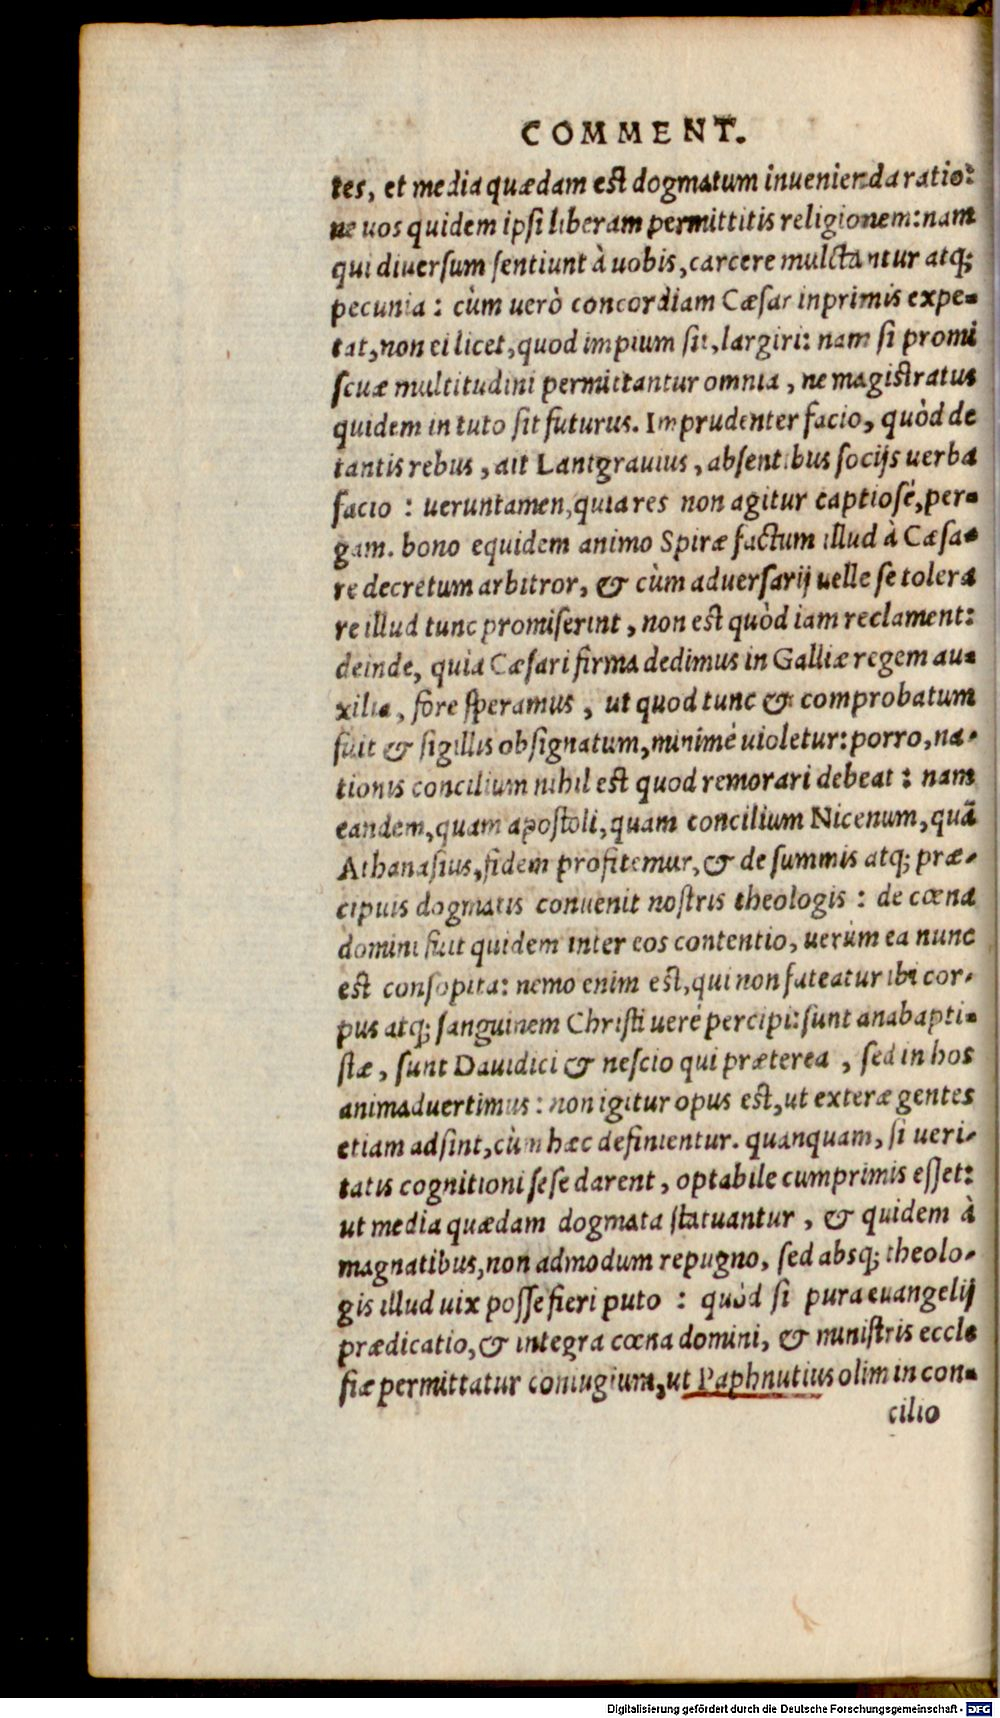 COMMENT.
tes, et media quædam est dogmatum inuenienda ratio:
ne uos quidem ipsi liberam permittitis religionem: nam
qui diuersum sentiunt à uobis, carcere mulctantur atq;
pecunia: cùm uerò concordiam Cæsar inprimis expe-
tat, non ei licet, quod impium sit, largiri: nam si promi
scuæ multitudini permittantur omnia, ne magistratus
quidem in tuto sit futurus. Imprudenter facio, quòd de
tantis rebus, ait Lantgrauius, absentibus socijs uerba
facio: ueruntamen, quia res non agitur captiosè, per-
gam. bono equidem animo Spiræ factum illud à Cæsa-
re decretum arbitror, & cùm aduersarij uelle se tolera
re illud tunc promiserint, non est quòd iam reclament:
deinde, quia Cæsari firma dedimus in Galliæ regem au-
xilia, fore speramus, ut quod tunc & comprobatum
fuit & sigillis obsignatum, minimè uioletur: porro, na-
tionis concilium nihil est quod remorari debeat: nam
eandem, quam apostoli, quam concilium Nicenum, quã
Athanasius, fidem profitemur, & de summis atq; præ-
cipuis dogmatis conuenit nostris theologis: de cœna
domini fuit quidem inter eos contentio, uerùm ea nunc
est consopita: nemo enim est, qui non fateatur ibi cor-
pus atq; sanguinem Christi uerè percipi: sunt anabapti-
stæ, sunt Dauidici & nescio qui præterea, sed in hos
animaduertimus: non igitur opus est, ut exteræ gentes
etiam adsint, cùm hæc definientur. quanquam, si ueri-
tatis cognitioni sese darent, optabile cumprimis esset:
ut media quædam dogmata statuantur, & quidem à
magnatibus, non admodum repugno, sed absq; theolo-
gis illud uix posse fieri puto: quòd si pura euangelij
prædicatio, & integra cœna domini, & ministris eccle
siæ permittatur coniugium, ut Paphnutius olim in con-
cilio
Digitalisierung gefördert durch die Deutsche Forschungsgemeinschaft - DFG